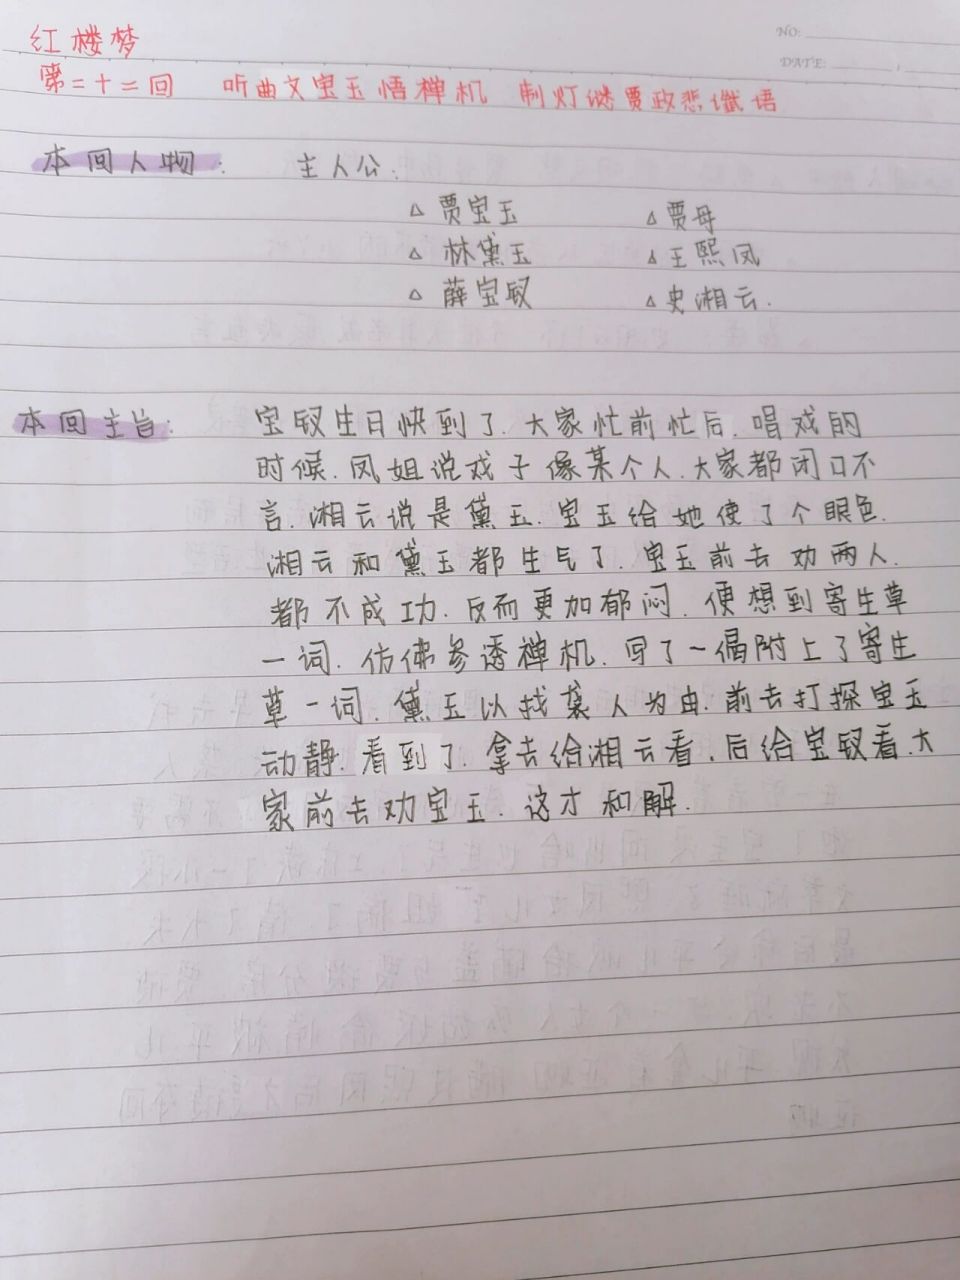 NO:
DATE:
红楼梦
第二十二回 听曲文宝玉悟禅机 制灯谜贾政悲谶语
本回人物: 主人公:
△ 贾宝玉 △ 贾母
△ 林黛玉 △ 王熙凤
△ 薛宝钗 △ 史湘云.
本回主旨: 宝钗生日快到了.大家忙前忙后.唱戏的
时候.凤姐说戏子像某个人.大家都闭口不
言.湘云说是黛玉.宝玉给她使了个眼色.
湘云和黛玉都生气了.宝玉前去劝两人.
都不成功.反而更加郁闷.便想到寄生草
一词.仿佛参透禅机.写了一偈附上了寄生
草一词.黛玉以找袭人为由.前去打探宝玉
动静.看到了.拿去给湘云看.后给宝钗看.大
家前去劝宝玉.这才和解.